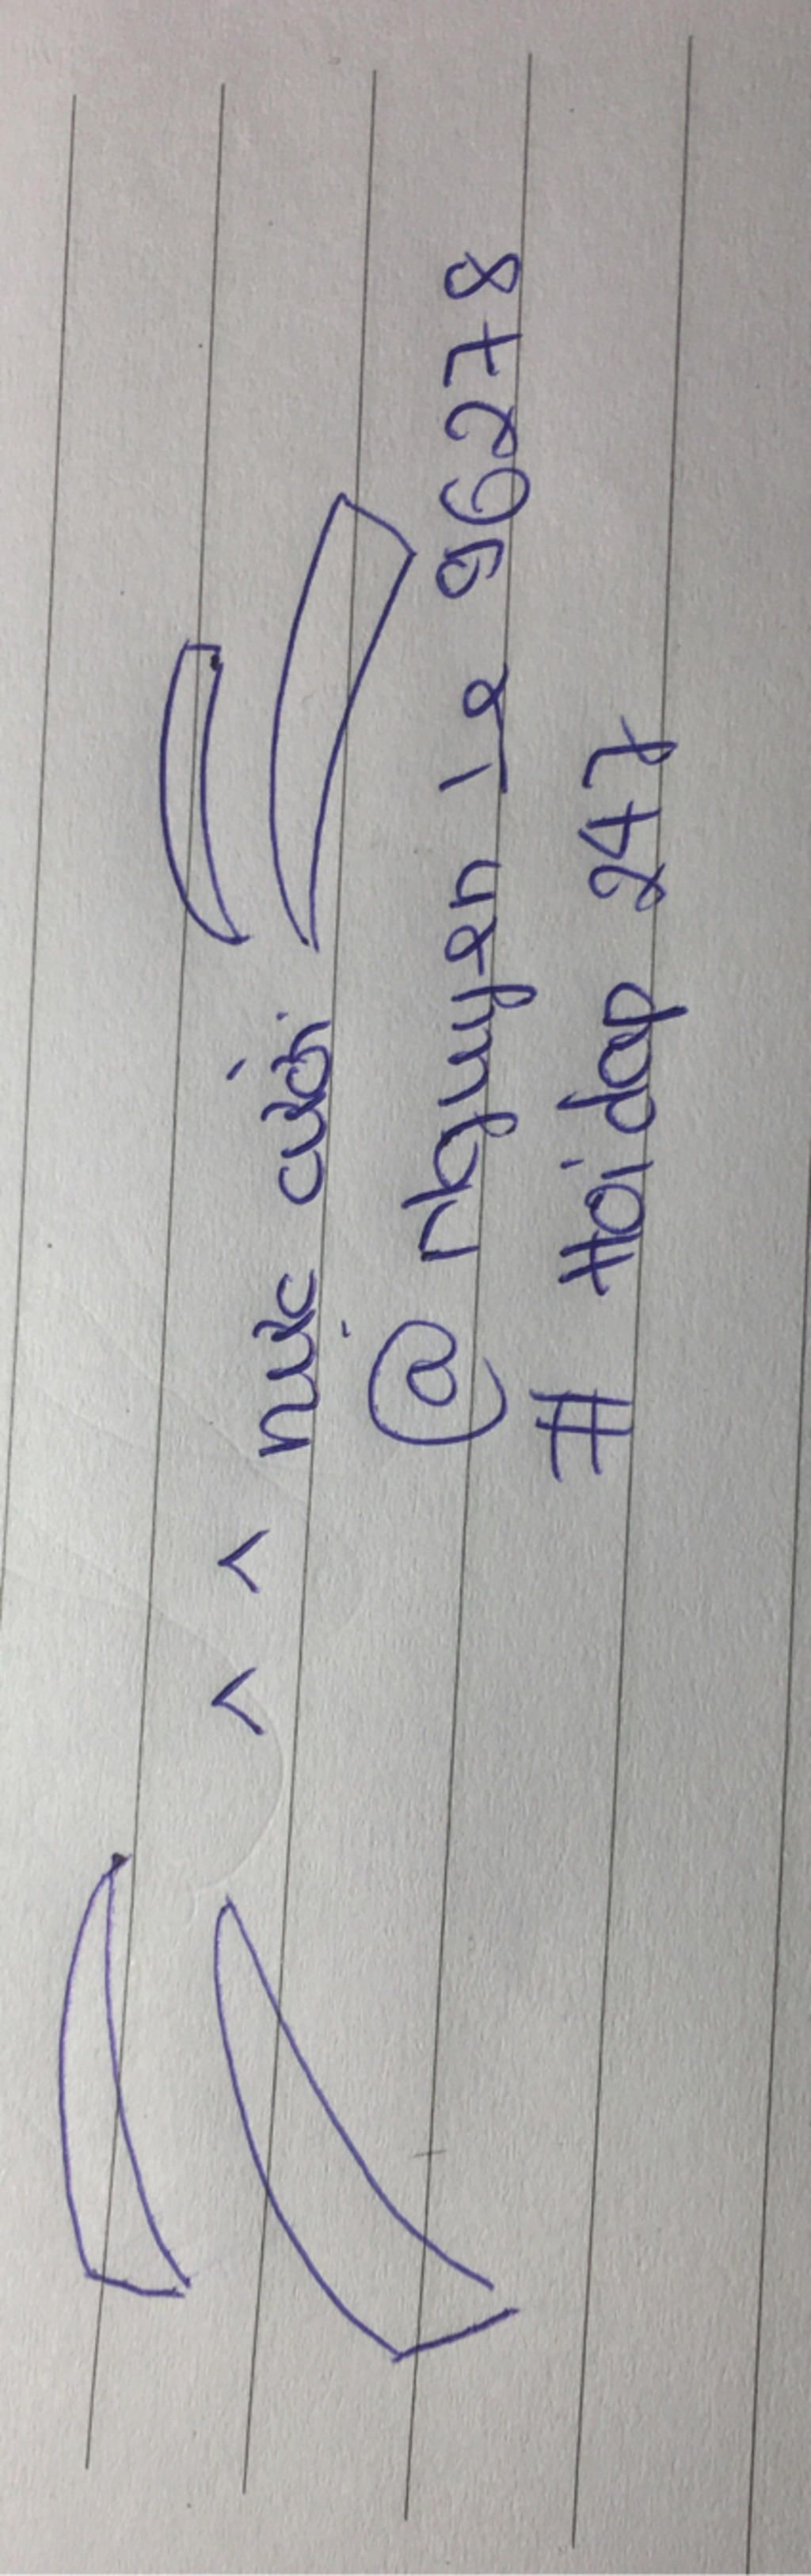 ^ ^ nực cười
@ nguyen le 96278
# Hoidap 247